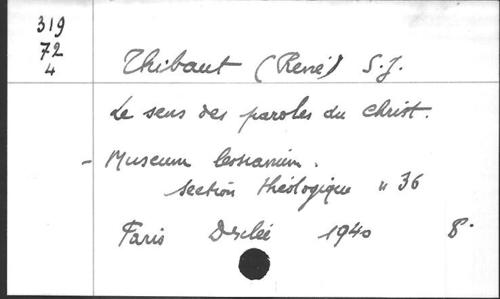 319
72
4
Thibaut (René) S.J.
Le sens des paroles du Christ.
- Museum lessianum.
section théologique n 36
Paris Desclée 1940 8°